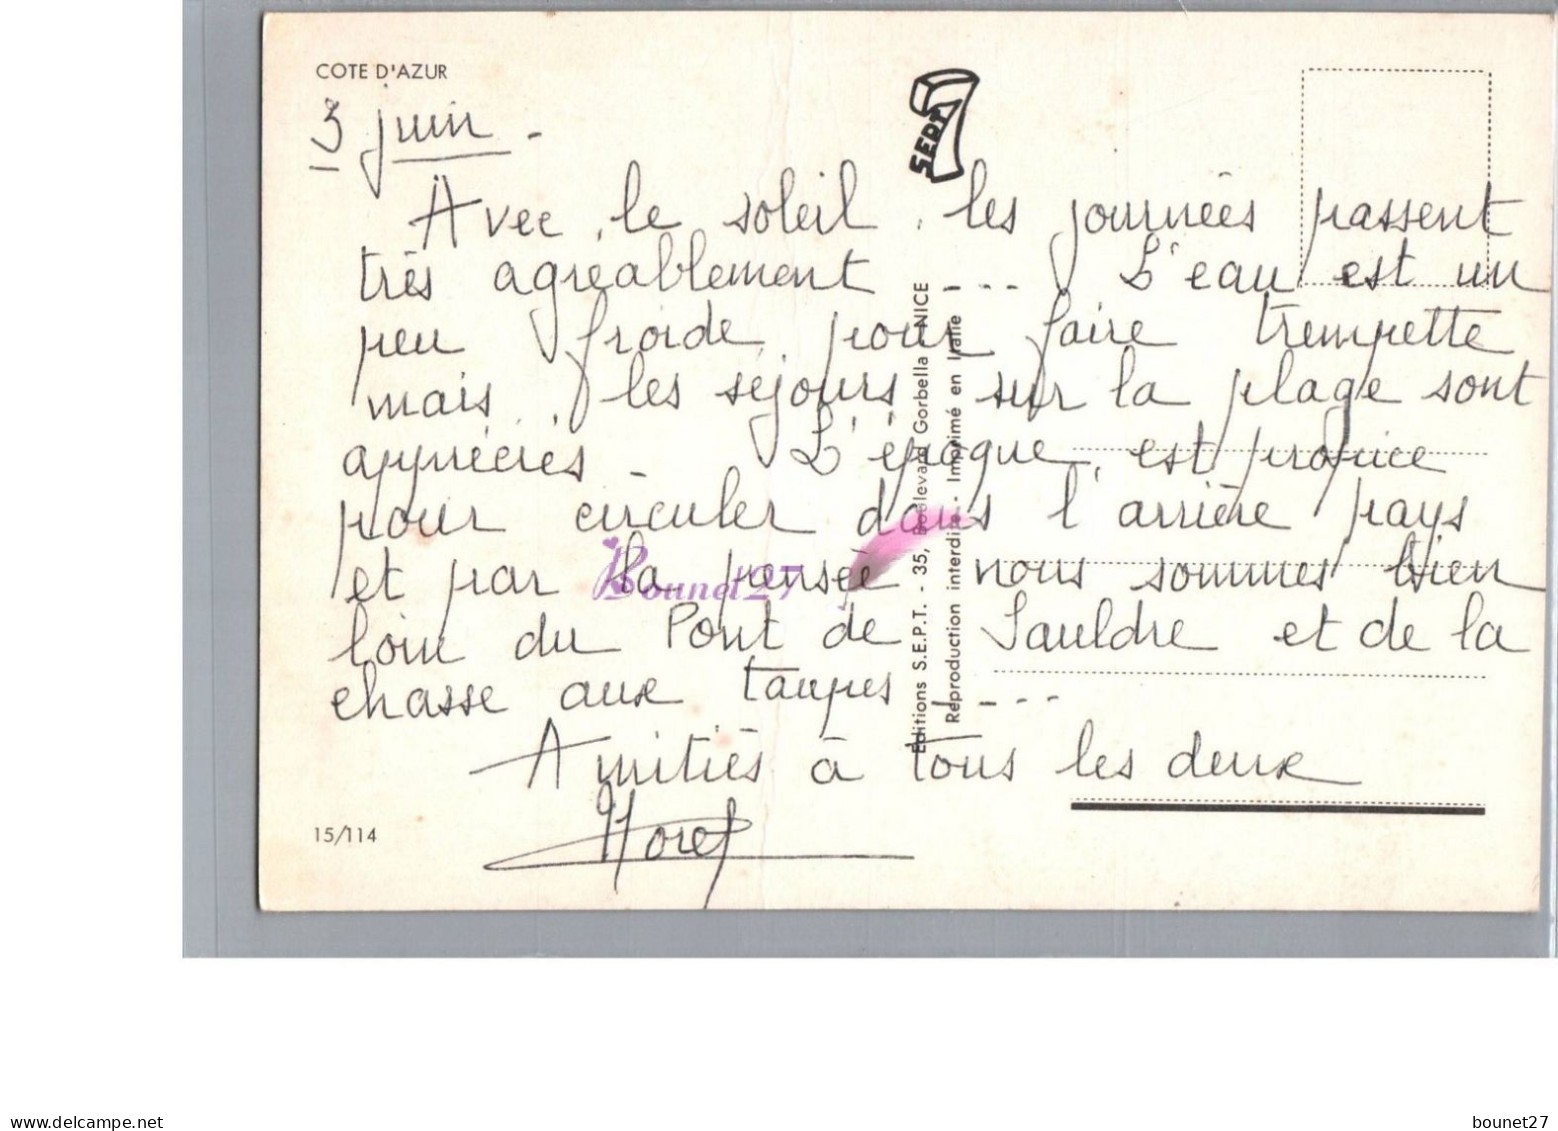 COTE D'AZUR
3 juin -
SEPT
7
Avec le soleil, les journées passent
très agréablement - - - L'eau est un
peu froide, pour faire trempette
mais, les séjours sur la plage sont
appréciés - L'époque, est propice
pour circuler dans l'arrière pays
et par la pensée nous sommes bien
loin du Pont de Sauldre et de la
chasse aux taupes - - - -
Amitiés à tous les deux
15/114
Editions S.E.P.T. - 35, Boulevard Gorbella - NICE
Reproduction interdite - Imprimé en Italie
Bounet27
www.delcampe.net
bounet27